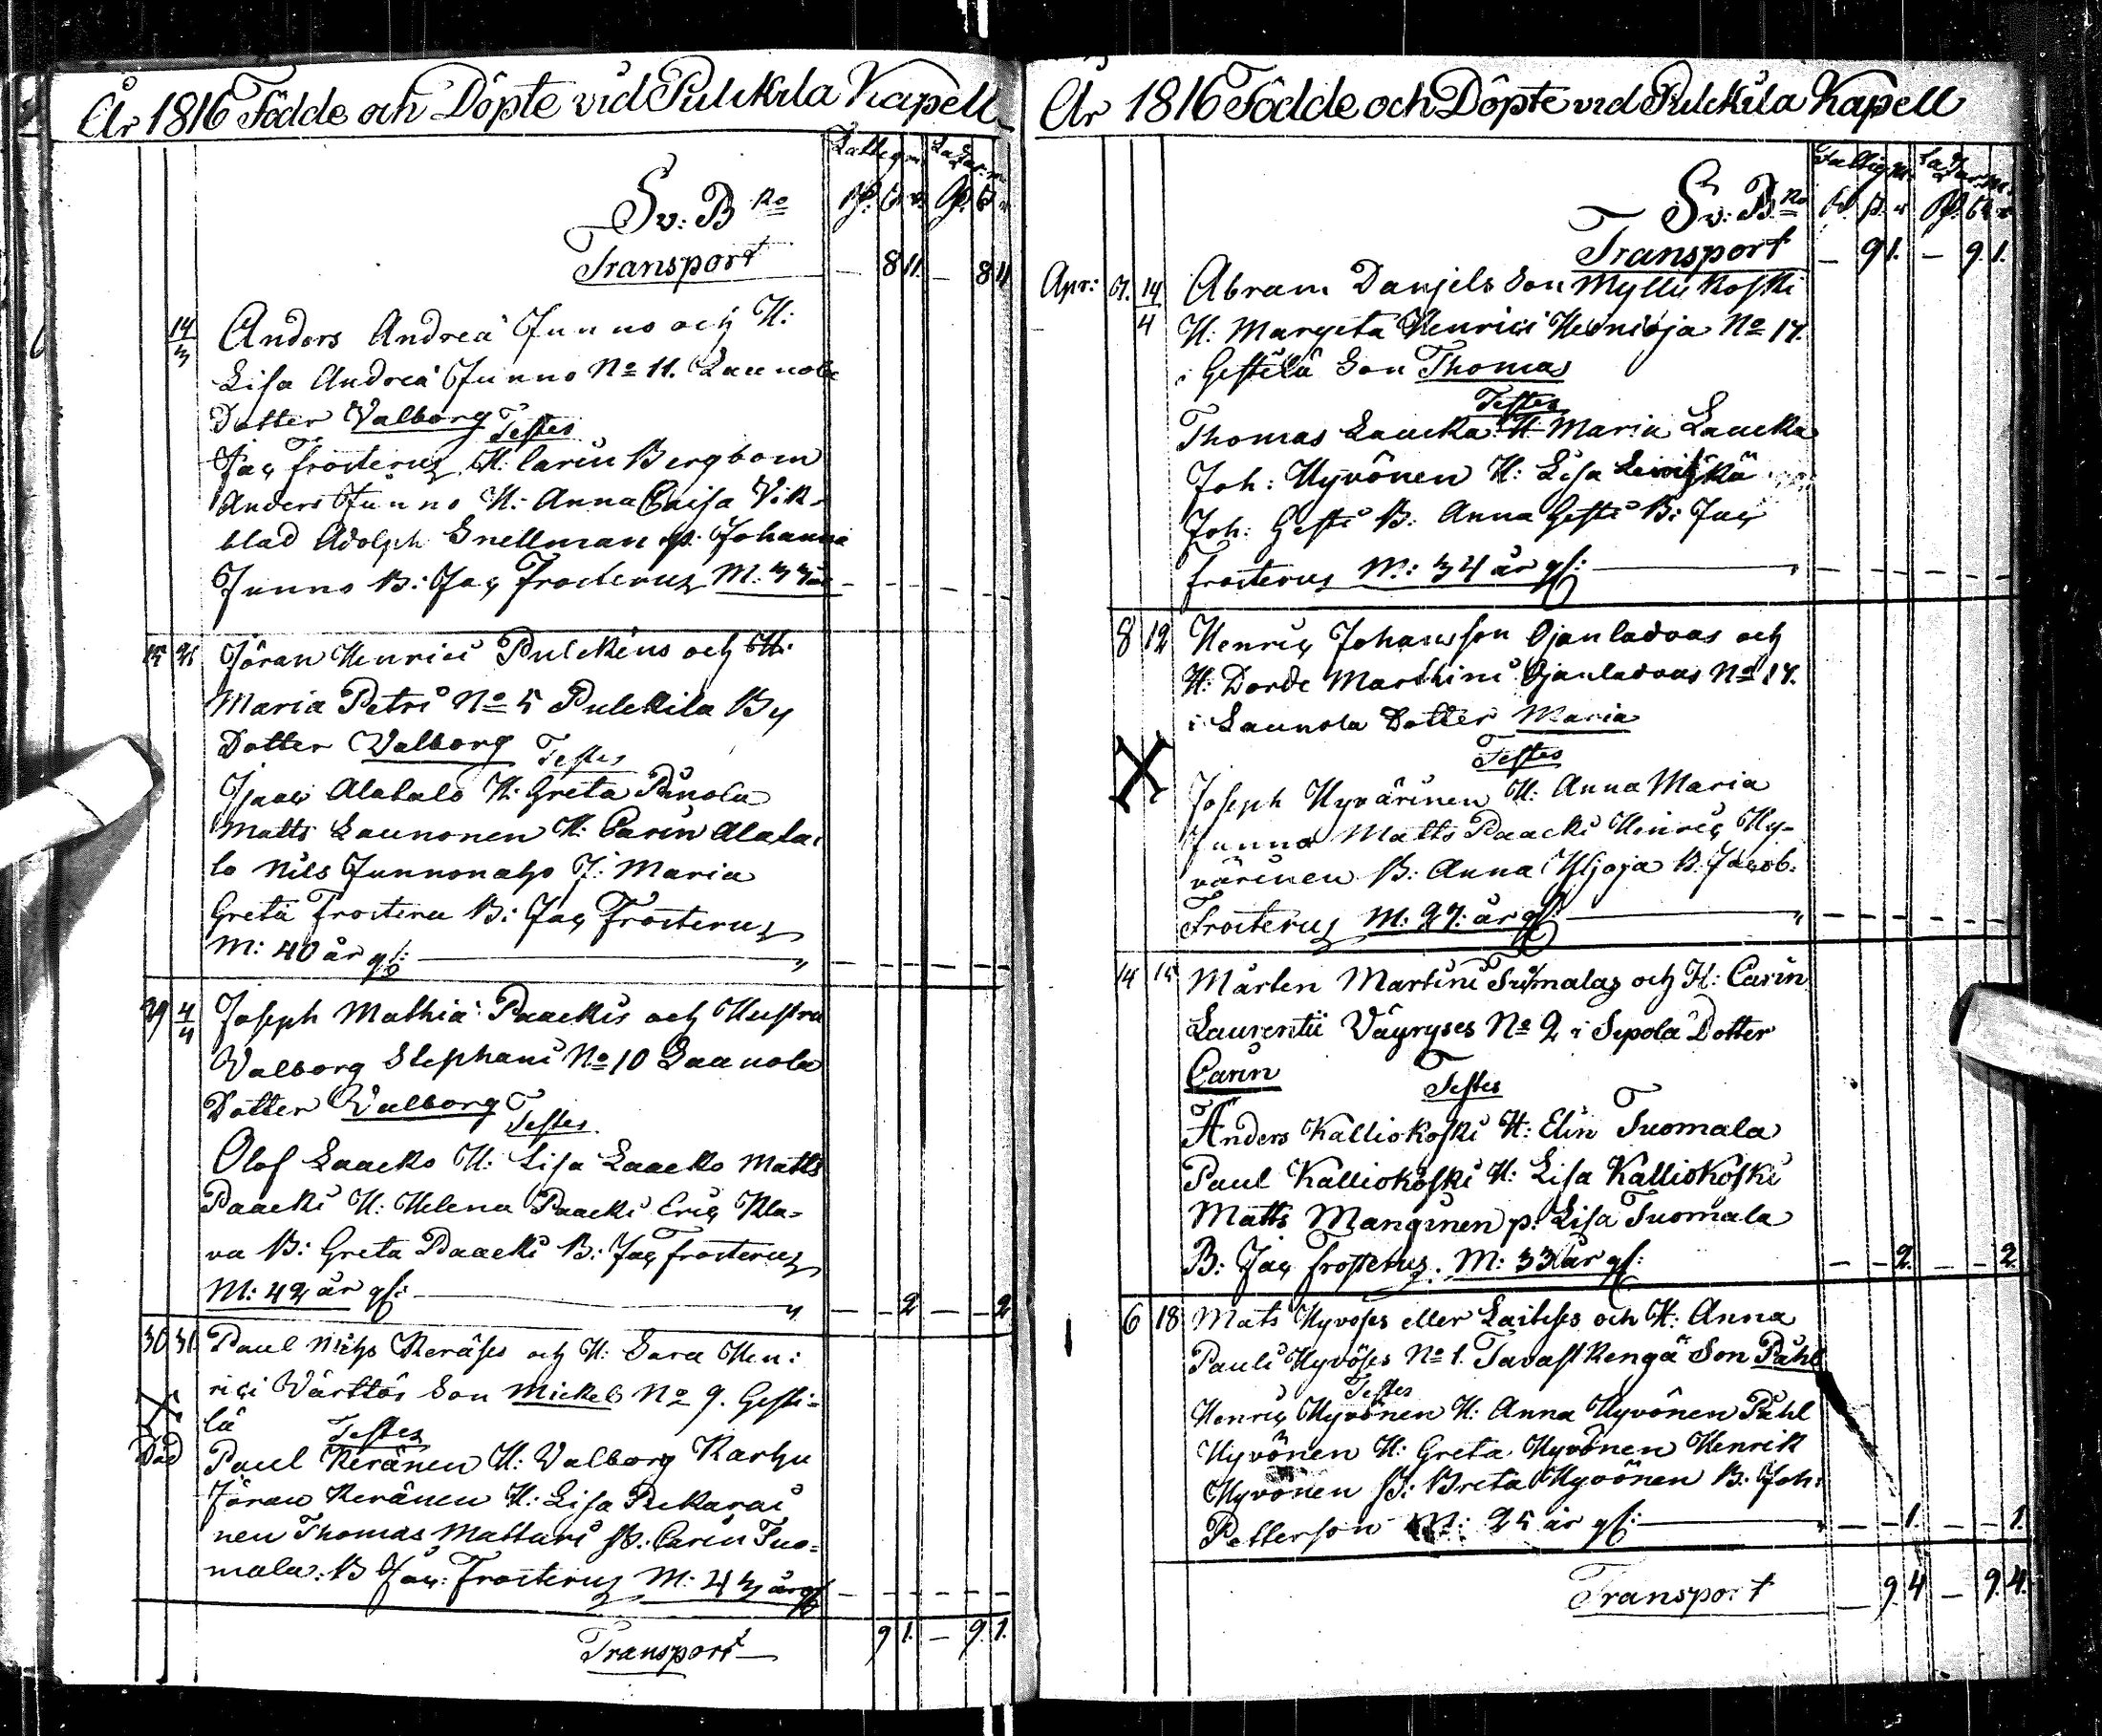 År 1816 Födde och Döpte vid Pulckila Kapell
Fattigm. Lazar.m.
Sv: B no
Transport — 8 11. — 8 11
14/3 Anders Andreä Junno och H:
Lisa Andreä Junno No 11. Launola
Dotter Valborg Testes
Jac Frosterus H: Carin Bergbom
Anders Junno H: Anna Caisa Vik-
blad Adolph Snellman p. Johanna
Junno B: Jac Frosterus M: 33 år
15 21 Jöran Henrici Pulckins och H:
Maria Petri No 5 Pulckila By
Dotter Valborg Testes
Isaac Alatalo H: Greta Punola
Matts Launonen H: Carin Alata-
lo Nils Junnonaho J: Maria
Greta Frostera B: Jac Frosterus
M: 40 år gl:
29 4/4 Joseph Mathiä Paackis och Hustru
Valborg Stephani No 10 Laanola
Dotter Walborg
Testes
Olof Laacko H: Lisa Laacko Matts
Paacki H: Helena Paacki Eric Kla-
va B: Greta Paacki B: Jac Frosterus
M: 42 år gl: — - 2 — - 2
30 31 Paul Keräses och H: Sara Hen:
rici Wärttös Son Mickel No 9. Gesti-
X lä Testes
Död Paul Keränen H: Valborg Karhu
Jöran Keränen H: Lisa Puckarai
nen Thomas Mattari p. Carin Tuo-
mala: B Jac: Frosterus M: 43 år gl
Transport 9 1. — 9. 1.
År 1816 Födde och Döpte vid Pulckila Kapell
Fattig m. Lazar.m.
Sv: B. no
Transport — 9 1. — 9. 1.
Apr: 7. 14/4 Abram Danjels Son Myllykoski
H: Margeta Henrici No 17.
i Gestilä Son Thomas
Testes
Thomas Laucka H: Maria Laucka
Joh: Hyvönen H: Lisa
Joh: Gesti B: Anna Gesti B: Jac
Frosterus M: 34 år gl:
8 12 Henric Johansson Ojanladvas och
H: Dorde Marthini Ojanladvas No 17.
i Launola Dotter Maria
X Testes
Joseph Hyvärinen H: Anna Maria
Junno Matts Paacki Henric Hy-
värinen B: Anna B. Jacob.
Frosterus M: 27. år gl:
14 15 Mårten Martini Suomalas och H: Carin
Laurentii Väyryses No 2 i Sepola Dotter
Carin Testes
Anders Kalliokoski H: Elin Tuomala
Paul Kalliokoski H: Lisa Kalliokoski
Matts Manginen p. Lisa Tuomala
B: Jac Frosterus. M: 33 år gl: — - 2. — - 2.
6 18 Mats Hyvöses eller Laitises och H: Anna
Pauli Hyvöses No 1. Tavastkengä Son Påhl
Testes
Henric Hyvönen H: Anna Hyvönen Påhl
Hyvönen H: Greta Hyvönen Henrik
Hyvönen B: Breta Hyvönen B: Joh:
Petterson M: 25 år gl: — - 1. — - 1.
Transport — 9. 4 — 9. 4.